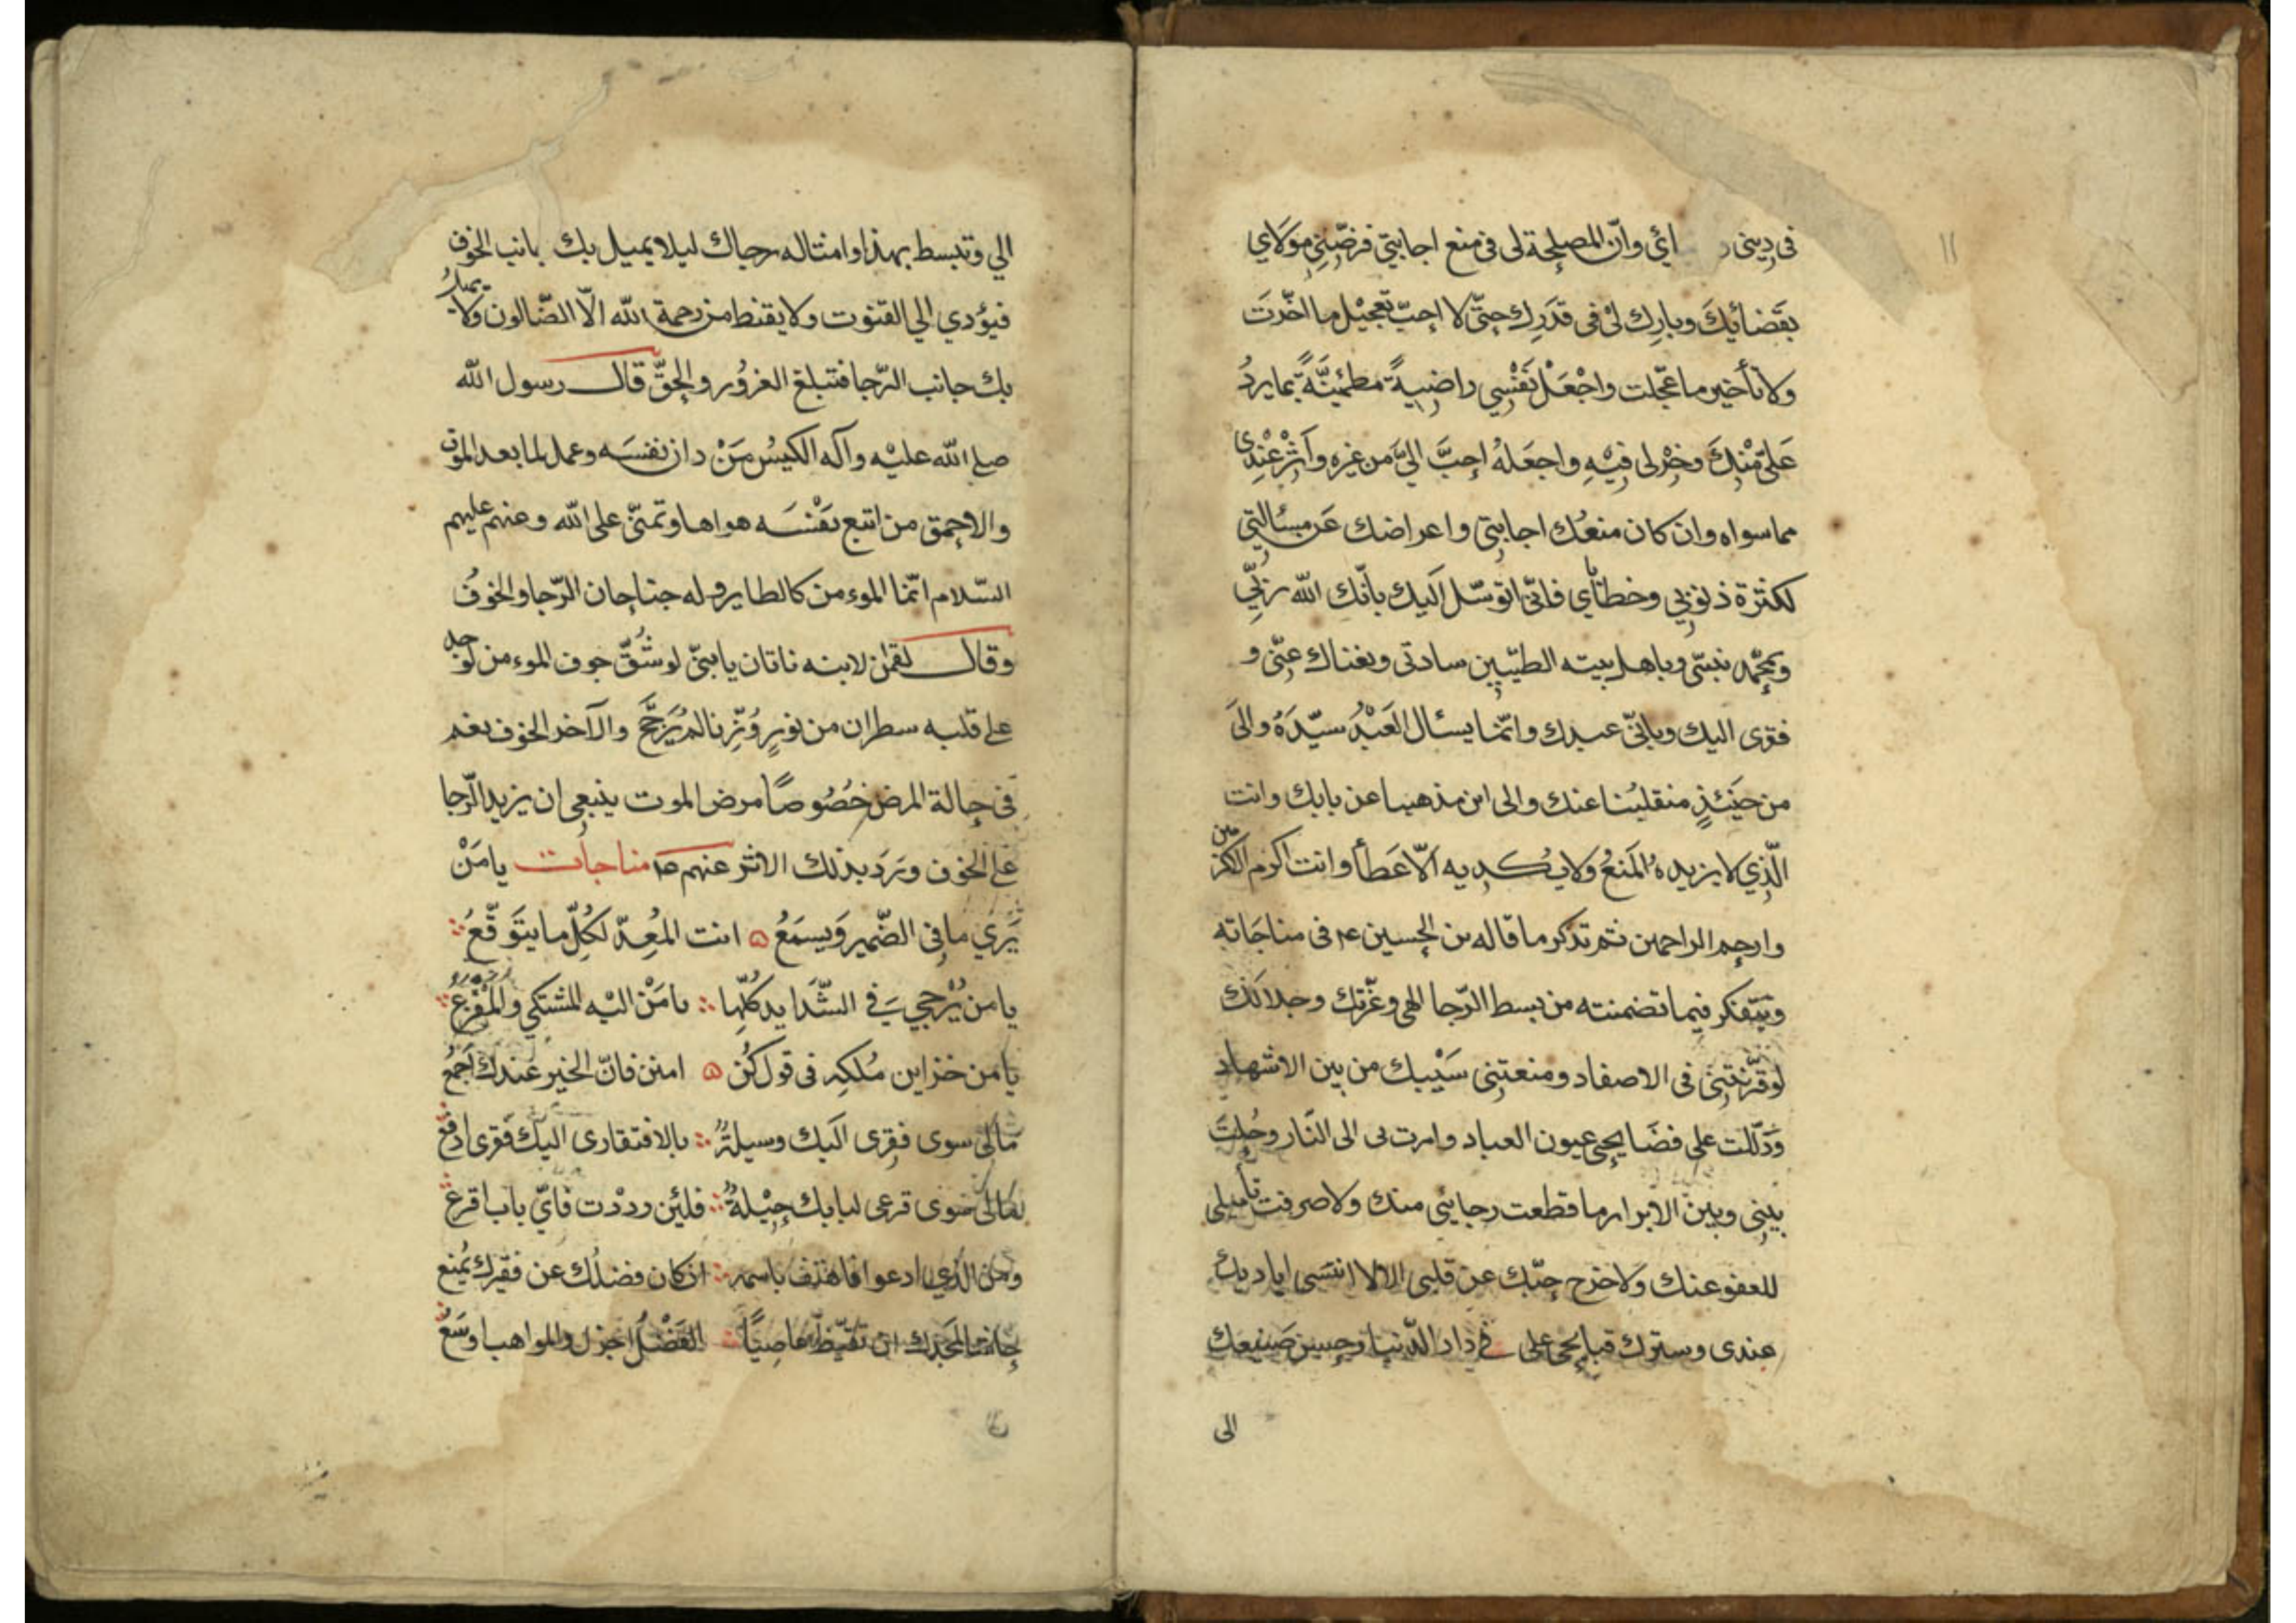 في ديني و ائي وان المصلحة لى فى منع اجابتي فرضّني مولاي
بقضائك وبارك لى فى قدرك حتّى لا احبّ تعجيل ما اخّرت
ولا تأخير ما عجّلت واجعل نفسي راضية مطمئنّة بما يرد
علىّ منك وخر لى فيه واجعله احبّ الىّ من غيره وآثر عندى
مما سواه وان كان منعك اجابتي واعراضك عن مسألتي
لكثرة ذنوبي وخطائي فانّى اتوسّل اليك بانّك الله ربّي
وبمحمّد نبيّى وباهل بيته الطيّبين سادتى وبغناك عنّى و
فقرى اليك وبانّى عبدك وانّما يسئال العبد سيّده والى
من حينئذٍ منقلبنا عنك والى اين مذهبنا عن بابك وانت
الّذي لا يزيده المنع ولا يكديه الّا عطأ وانت اكرم الاكرمين
وارحم الراحمين ثم تذكر ما قاله بن الحسين ع فى مناجاته
ويتفكر فيما تضمنته من بسط الرّجا الهى وعزّتك وجلالك
لو قرّنتني فى الاصفاد ومنعتني سيبك من بين الاشهاد
ودلّلت على فضايحى عيون العباد وامرت بى الى النّار وحلت
بيني وبين الابرار ما قطعت رجائي منك ولا صرفت تأميلى
للعفو عنك ولا خرج حبّك عن قلبى الا لا انسى اياديك
عندى وسترك قبايحى على في دار الدّنيا وحسن صنيعك
الى
الي وتبسط بهذا وامثاله رجاك ليلا يميل بك بانب الخوف
فيؤدي الي القنوت ولا يقنط من رحمة الله الّا الضّالون ولا يميل
بك جانب الرّجا فتبلغ الغرور والحقّ قال رسول الله
صلى الله عليه وآله الكيس من دان نفسه وعمل لما بعد الموت
والاحمق من اتبع نفسه هواها وتمنّى على الله وعنهم عليهم
السّلام انّما الموءمن كالطاير وله جناحان الرّجا والخوف
وقال لقمٰن لابنه ناتان يا بنىّ لو شقّ جوف الموءمن لوجد
على قلبه سطران من نور وُزنا لم يرجّح والآخر الخوف نعم
فى حالة المرض خصوصًا مرض الموت ينبغى ان يزيد الرّجا
على الخوف وَرَد بذلك الاثر عنهم مناجات يا مَنْ
يَري ما فى الضّمير ويسمعُ انت المُعِدّ لكلّ ما يتوقّعُ
يا من يُرجي في الشّدايد كلّها يا من اليه المشتكى والمفزعُ
يا من خزاين ملكه فى قول كُن امنن فانّ الخير عندك اجمعُ
مالى سوى فقرى اليك وسيلةٌ بالافتقارى اليك فقرى ادفع
مالى سوى قرعى لبابك حيلةٌ فلئن رددت فايّ باب اقرع
ومن الّذي ادعوا فاهتف باسمه ان كان فضلك عن فقيرك يُمنع
حاشا لمجدك ان تقنّط عاصيًا الفضل اجزل والمواهب اوسعُ